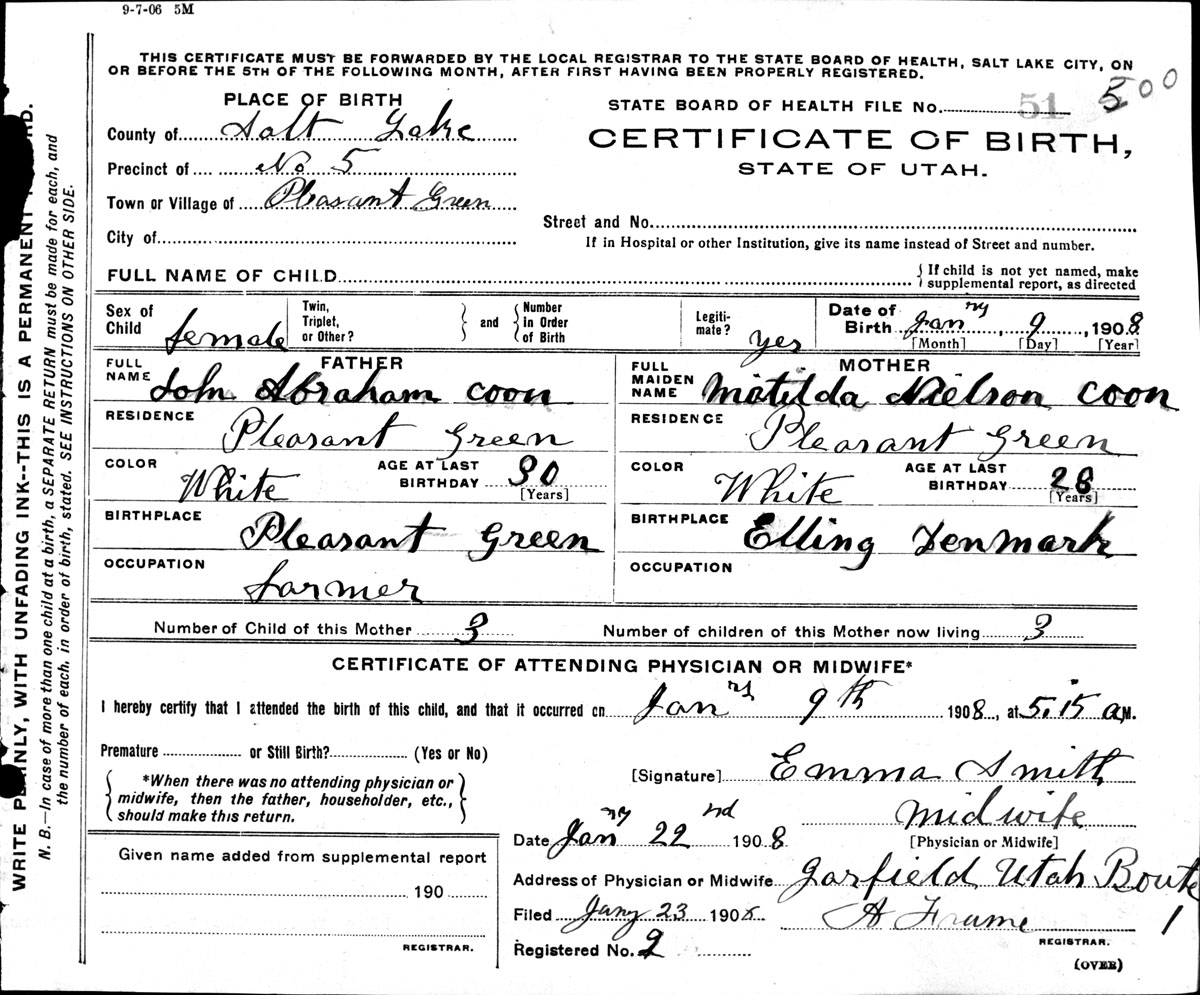 9-7-06 5M
THIS CERTIFICATE MUST BE FORWARDED BY THE LOCAL REGISTRAR TO THE STATE BOARD OF HEALTH, SALT LAKE CITY, ON
OR BEFORE THE 5TH OF THE FOLLOWING MONTH, AFTER FIRST HAVING BEEN PROPERLY REGISTERED.
PLACE OF BIRTH
County of Salt Lake
Precinct of No 5
Town or Village of Pleasant Green
City of
STATE BOARD OF HEALTH FILE No. 51 500
CERTIFICATE OF BIRTH,
STATE OF UTAH.
Street and No.
If in Hospital or other Institution, give its name instead of Street and number.
FULL NAME OF CHILD
If child is not yet named, make
supplemental report, as directed
Sex of Child female
Twin, Triplet, or Other?
and
Number in Order of Birth
Legiti-mate? yes
Date of Birth Janry, 9, 1908
[Month] [Day] [Year]
FATHER
FULL NAME John Abraham Coon
RESIDENCE Pleasant Green
COLOR White AGE AT LAST BIRTHDAY 30
[Years]
BIRTHPLACE Pleasant Green
OCCUPATION farmer
MOTHER
FULL MAIDEN NAME Matilda Nielson Coon
RESIDENCE Pleasant Green
COLOR White AGE AT LAST BIRTHDAY 28
[Years]
BIRTHPLACE Elling Denmark
OCCUPATION
Number of Child of this Mother 3 Number of children of this Mother now living 3
CERTIFICATE OF ATTENDING PHYSICIAN OR MIDWIFE*
I hereby certify that I attended the birth of this child, and that it occurred on Janry 9th 1908, at 5.15 a M.
Premature or Still Birth? (Yes or No)
*When there was no attending physician or
midwife, then the father, householder, etc.,
should make this return.
[Signature] Emma Smith
midwife
[Physician or Midwife]
Date Janry 22nd 1908
Address of Physician or Midwife Garfield Utah Route 1
Filed Jany 23 1908
REGISTRAR.
Registered No. 2
(OVER)
Given name added from supplemental report
190
REGISTRAR.
WRITE PLAINLY, WITH UNFADING INK--THIS IS A PERMANENT
N. B.—In case of more than one child at a birth, a SEPARATE RETURN must be made for each, and
the number of each, in order of birth, stated. SEE INSTRUCTIONS ON OTHER SIDE.